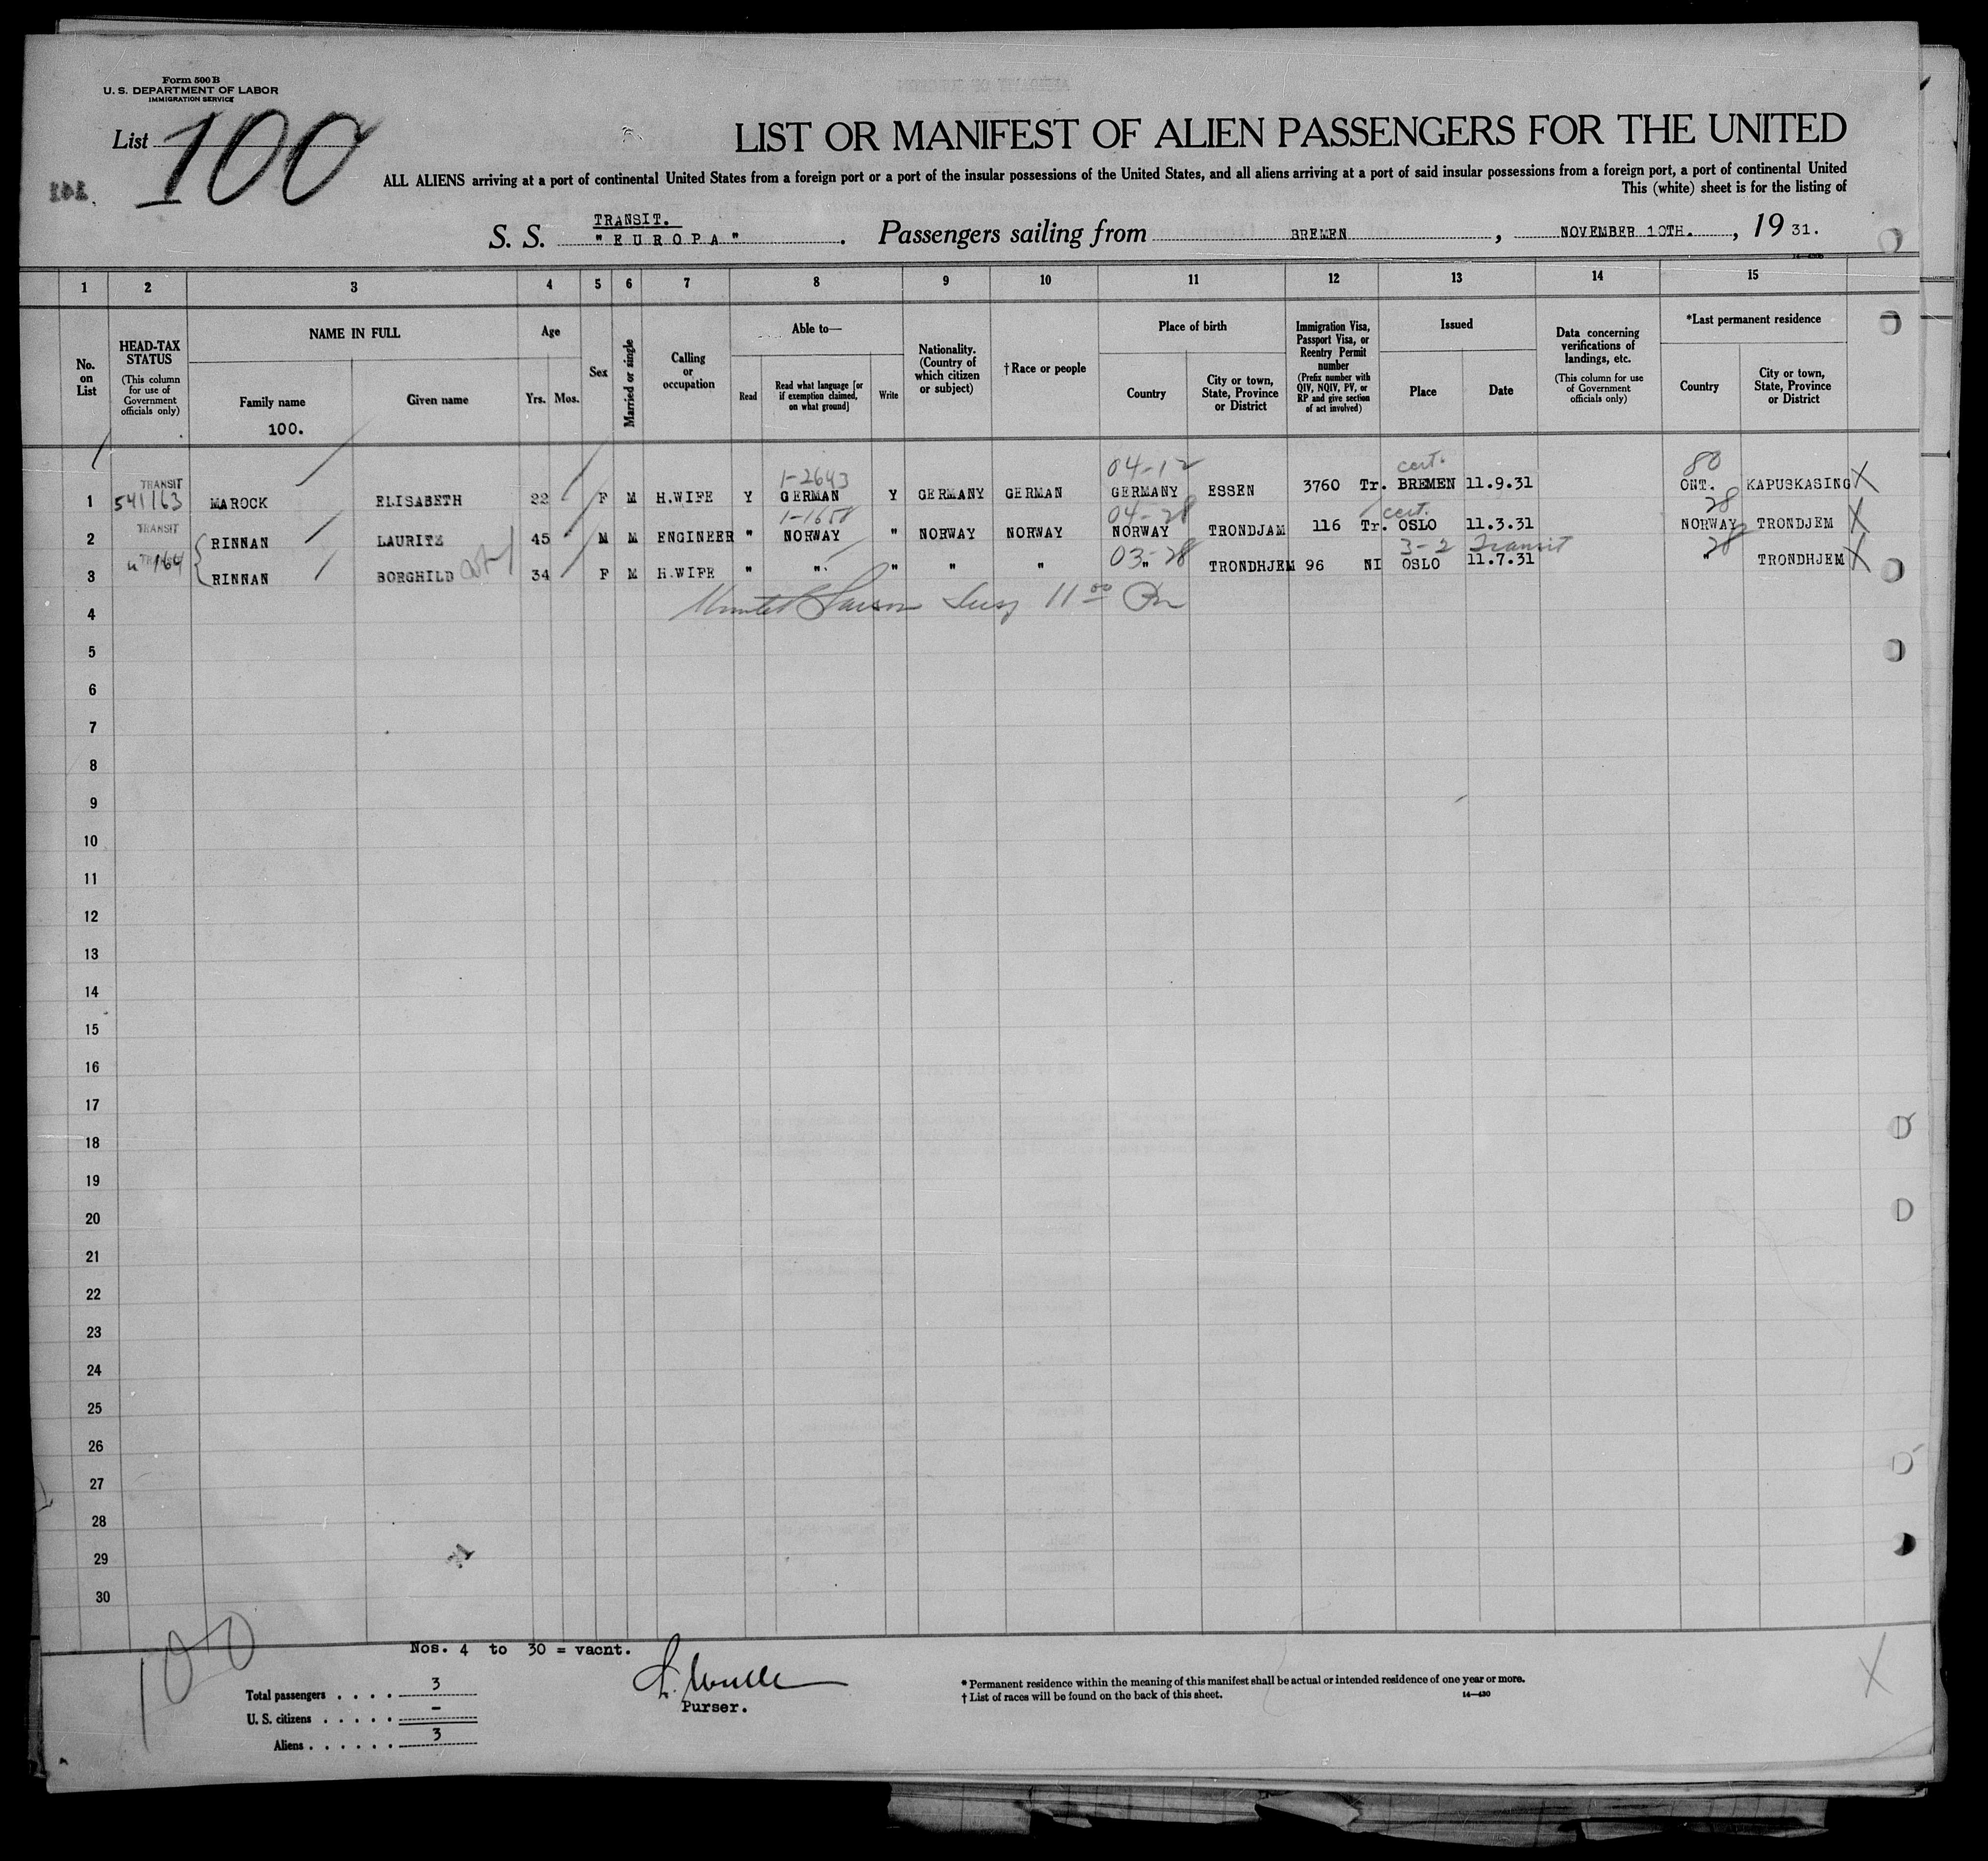 Form 500 B
U. S. DEPARTMENT OF LABOR
IMMIGRATION SERVICE
List 100
LIST OR MANIFEST OF ALIEN PASSENGERS FOR THE UNITED
ALL ALIENS arriving at a port of continental United States from a foreign port or a port of the insular possessions of the United States, and all aliens arriving at a port of said insular possessions from a foreign port, a port of continental United
This (white) sheet is for the listing of
TRANSIT.
S. S. "EUROPA". Passengers sailing from BREMEN, NOVEMBER 10TH., 19 31.
1 2 3 4 5 6 7 8 9 10 11 12 13 14 15
No. on List
HEAD-TAX STATUS
(This column for use of Government officials only)
NAME IN FULL
Family name
100.
Given name
Age
Yrs. Mos.
Sex
Married or single
Calling or occupation
Able to—
Read
Read what language [or if exemption claimed, on what ground]
Write
Nationality. (Country of which citizen or subject)
†Race or people
Place of birth
Country
City or town, State, Province or District
Immigration Visa, Passport Visa, or Reentry Permit number
(Prefix number with QIV, NQIV, PV, or RP and give section of act involved)
Issued
Place
Date
Data concerning verifications of landings, etc.
(This column for use of Government officials only)
*Last permanent residence
Country
City or town, State, Province or District
1-2643 04-12 cert. 80
TRANSIT
1 541163 MAROCK ELISABETH 22 F M H.WIFE Y GERMAN Y GERMANY GERMAN GERMANY ESSEN 3760 Tr. BREMEN 11.9.31 ONT. KAPUSKASING X
1-1658 04-28 cert. 28
TRANSIT
2 RINNAN LAURITZ 45 M M ENGINEER " NORWAY " NORWAY NORWAY NORWAY TRONDJAM 116 Tr. OSLO 11.3.31 NORWAY TRONDJEM X
03-28 3-2 Transit 28
3 " 164 RINNAN BORGHILD 34 F M H.WIFE " " " " " " TRONDHJEM 96 NI OSLO 11.7.31 " TRONDHJEM X
4
5
6
7
8
9
10
11
12
13
14
15
16
17
18
19
20
21
22
23
24
25
26
27
28
29
30
100
Nos. 4 to 30 = vacnt.
Total passengers . . . . 3
U. S. citizens . . . . . -
Aliens . . . . . . 3
Purser.
* Permanent residence within the meaning of this manifest shall be actual or intended residence of one year or more.
† List of races will be found on the back of this sheet.
14—430
X